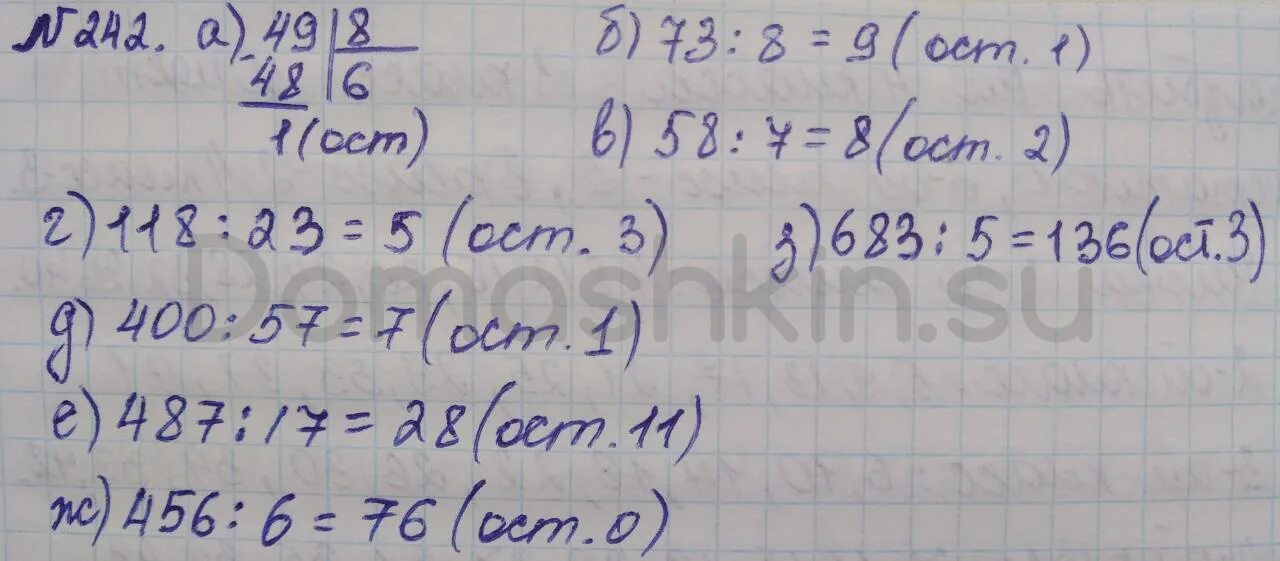 №242. а) 49 | 8
- 48 | 6
1 (ост)
б) 73 : 8 = 9 (ост. 1)
в) 58 : 7 = 8 (ост. 2)
г) 118 : 23 = 5 (ост. 3)
з) 683 : 5 = 136 (ост. 3)
д) 400 : 57 = 7 (ост. 1)
е) 487 : 17 = 28 (ост. 11)
ж) 456 : 6 = 76 (ост. 0)
Domashkin.su